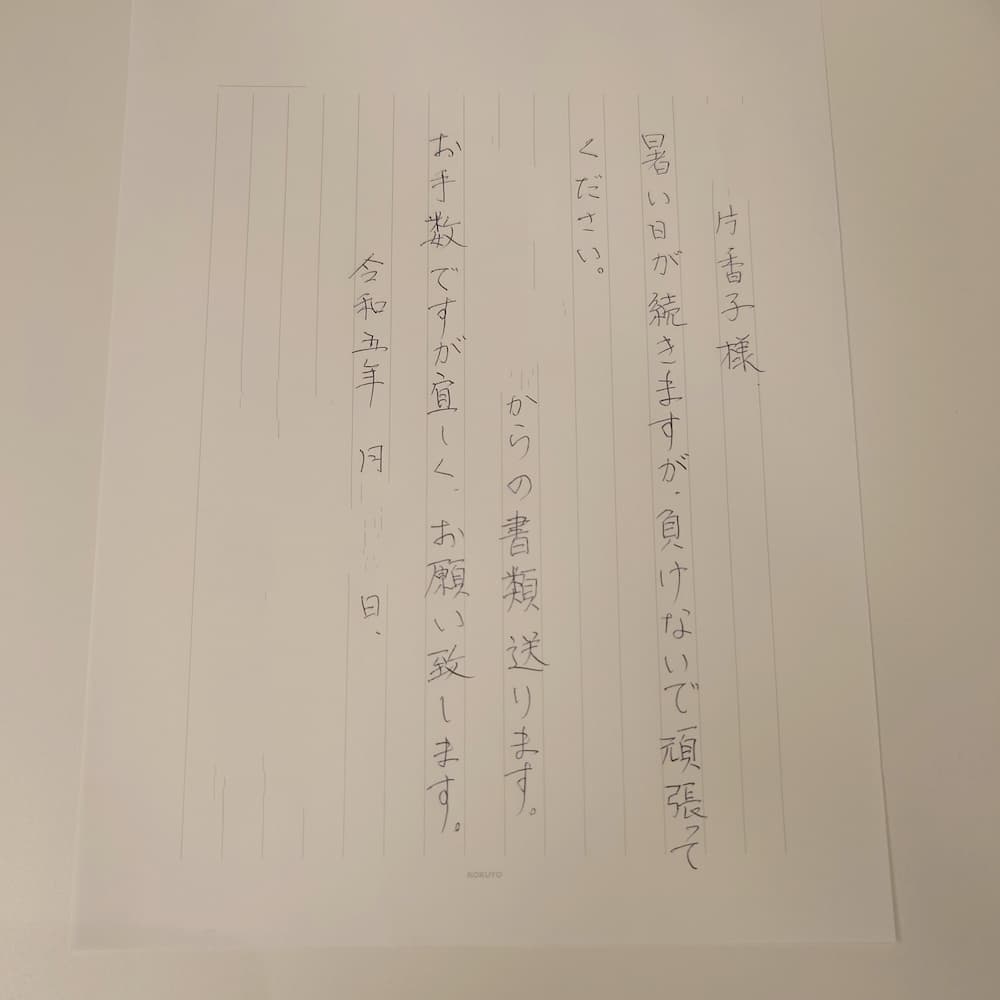 片香子様
暑い日が続きますが、負けないで頑張って
ください。
からの書類送ります。
お手数ですが宜しく、お願い致します。
令和五年 月 日、
KOKUYO